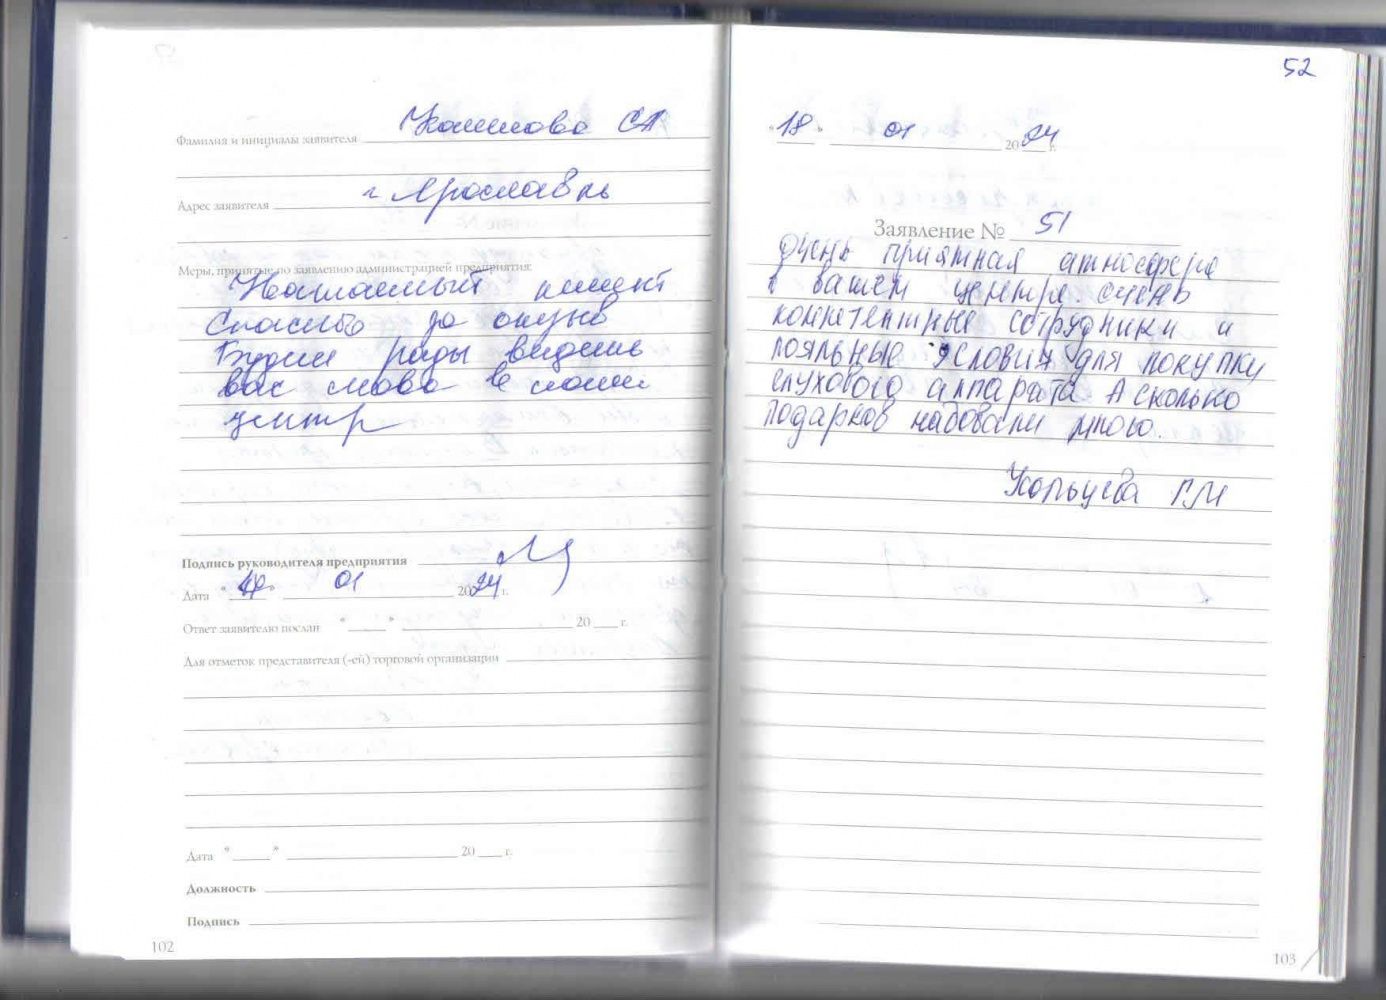 Фамилия и инициалы заявителя СА
Адрес заявителя г Ярославль
Меры, принятые по заявлению администрацией предприятия:
Спасибо за отзыв
Будем рады видеть
вас снова в нашем
центр
Подпись руководителя предприятия
Дата " " 01 2024 г.
Ответ заявителю послан " " 20 г.
Для отметок представителя (-ей) торговой организации
Дата " " 20 г.
Должность
Подпись
102
52
"18" 01 2024 г.
Заявление № 51
Очень приятная атмосфера
в вашем центре. очень
компетентные сотрудники и
лояльные условия для покупки
слухового аппарата А сколько
подарков много.
Кольцева Г.М
103